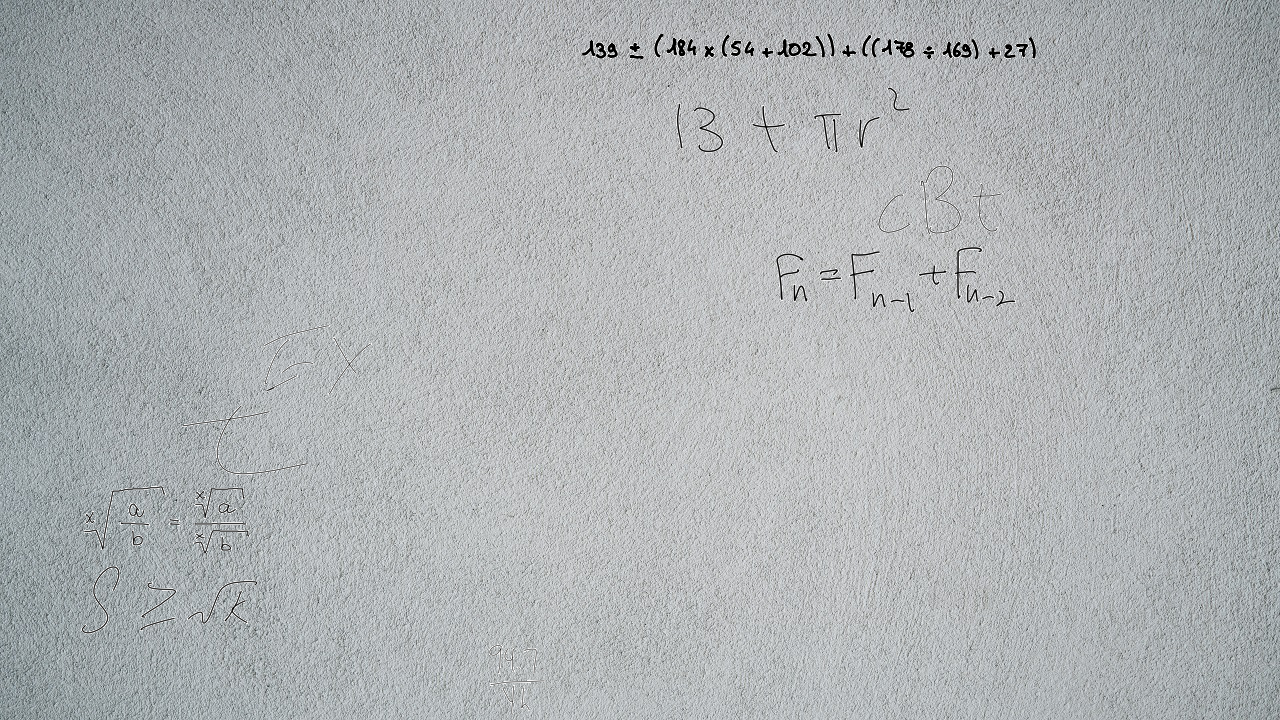 139 ± (184 × (54 + 102)) + ((178 ÷ 169) + 27)
13 + πr²
cBt
Fₙ = Fₙ₋₁ + Fₙ₋₂
Ex
t
ˣ√(a/b) = ˣ√a / ˣ√b
∫ ≥ √k